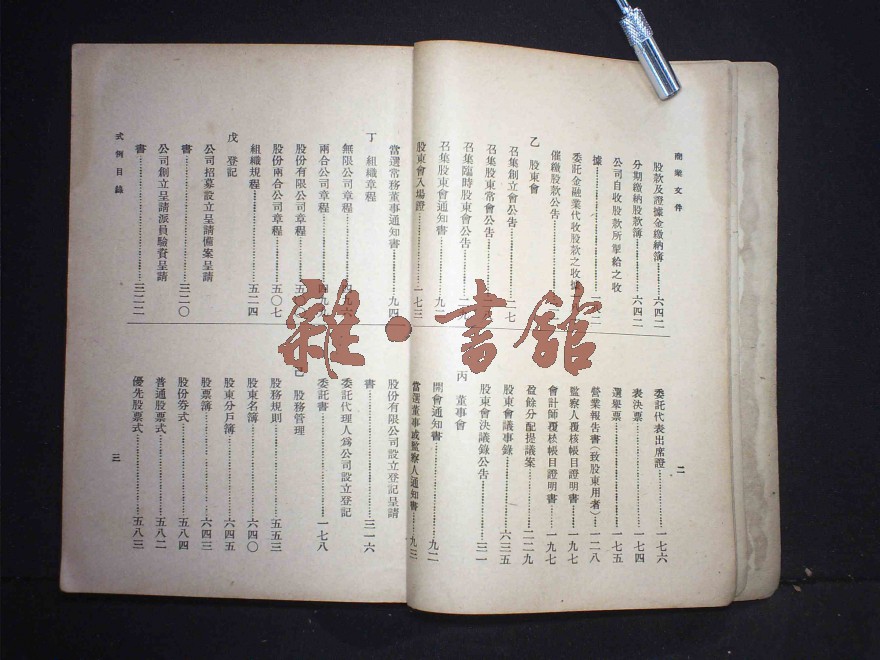 商業文件
股款及證據金繳納簿……六四二
分期繳納股款簿……六四二
公司自收股款所掣給之收
據……
委託金融業代收股款之收據
催繳股款公告……
乙 股東會
召集創立會公告……二七
召集股東常會公告……
召集臨時股東會公告……
召集股東會通知書……九二
股東會入場證……一七三
委託代表出席證……一七六
表決票……一七四
選舉票……一七五
營業報告書(致股東用者)……一二八
監察人覆核帳目證明書……一九七
會計師覆核帳目證明書……一九七
盈餘分配提議案……二二九
股東會議事錄……六三五
股東會決議錄公告……三一
丙 董事會
開會通知書……九二
當選董事或監察人通知書……九三
二
當選常務董事通知書……九四
丁 組織章程
無限公司章程……四九六
兩合公司章程……四九
股份有限公司章程……五
股份兩合公司章程……五〇七
組織規程……五二四
戊 登記
公司招募設立呈請備案呈請
書……三二〇
公司創立呈請派員驗資呈請
書……三二二
股份有限公司設立登記呈請
書……三一六
委託代理人為公司設立登記
委託書……一七八
己 股務管理
股務規則……五五三
股東名簿……六四〇
股東分戶簿……六四五
股票簿……六四三
股份券式……五八四
普通股票式……五八二
優先股票式……五八三
式例目錄
三
雜·書館